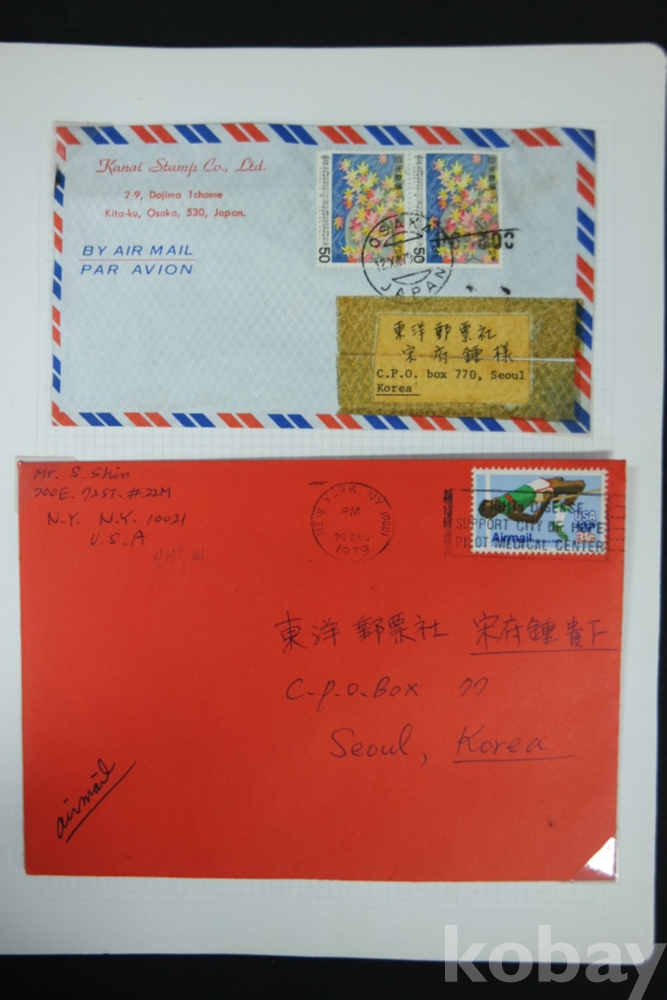 Kanai Stamp Co., Ltd.
2-9, Dojima 1chome
Kita-ku, Osaka, 530, Japan.
BY AIR MAIL
PAR AVION
日本郵便
50
日本郵便
50
OSAKA
JAPAN
東洋郵票社
宋府鍾様
C.P.O. box 770, Seoul
Korea
Mr. S. Shin
200E. 72ST. #22M
N.Y. N.Y. 10021
U.S.A
NEW YORK, NY
PM
1979
SUPPORT CITY OF HOPE
PILOT MEDICAL CENTER
USA
31c
Airmail
東洋郵票社 宋府鍾貴下
C.P.O. Box 77
Seoul, Korea
airmail
kobay